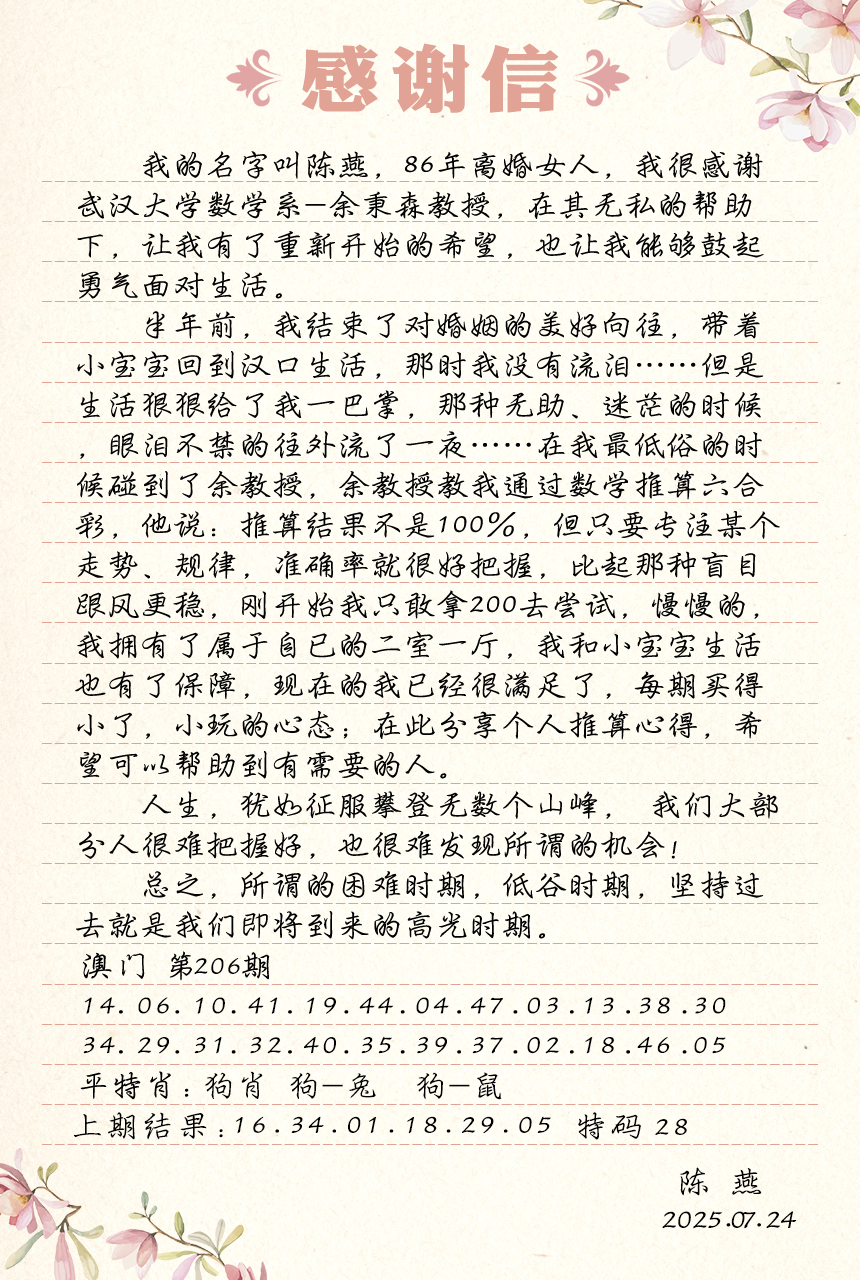 感谢信
我的名字叫陈燕，86年离婚女人，我很感谢
武汉大学数学系—余秉森教授，在其无私的帮助
下，让我有了重新开始的希望，也让我能够鼓起
勇气面对生活。
半年前，我结束了对婚姻的美好向往，带着
小宝宝回到汉口生活，那时我没有流泪……但是
生活狠狠给了我一巴掌，那种无助、迷茫的时候
，眼泪不禁的往外流了一夜……在我最低俗的时
候碰到了余教授，余教授教我通过数学推算六合
彩，他说：推算结果不是100%，但只要专注某个
走势、规律，准确率就很好把握，比起那种盲目
跟风更稳，刚开始我只敢拿200去尝试，慢慢的，
我拥有了属于自已的二室一厅，我和小宝宝生活
也有了保障，现在的我已经很满足了，每期买得
小了，小玩的心态；在此分享个人推算心得，希
望可以帮助到有需要的人。
人生，犹如征服攀登无数个山峰， 我们大部
分人很难把握好，也很难发现所谓的机会！
总之，所谓的困难时期，低谷时期，坚持过
去就是我们即将到来的高光时期。
澳门 第206期
14.06.10.41.19.44.04.47.03.13.38.30
34.29.31.32.40.35.39.37.02.18.46.05
平特肖：狗肖 狗—兔 狗—鼠
上期结果：16.34.01.18.29.05 特码 28
陈 燕
2025.07.24